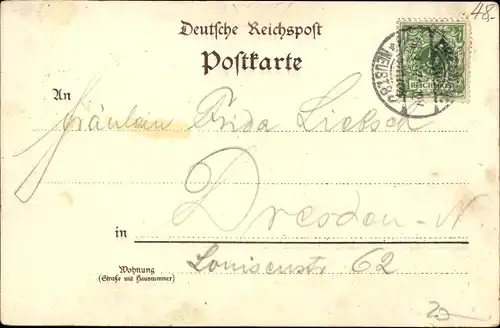 48.-
Deutsche Reichspost
Postkarte
REICHSPOST
An
Fräulein Frida Liebsch
Dresden-N
in
Louisenstr 62
Wohnung
(Straße und Hausnummer)